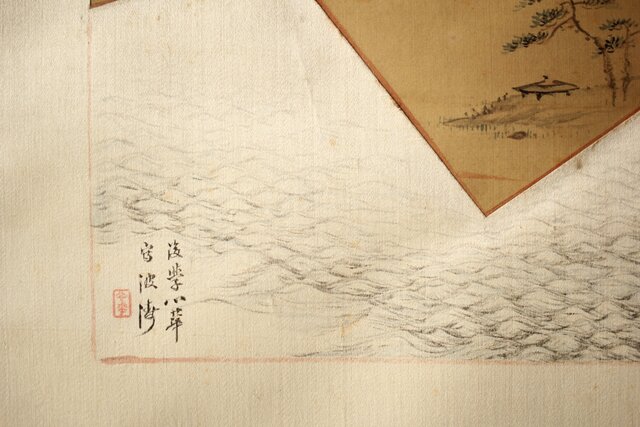 後學小華
写波濤